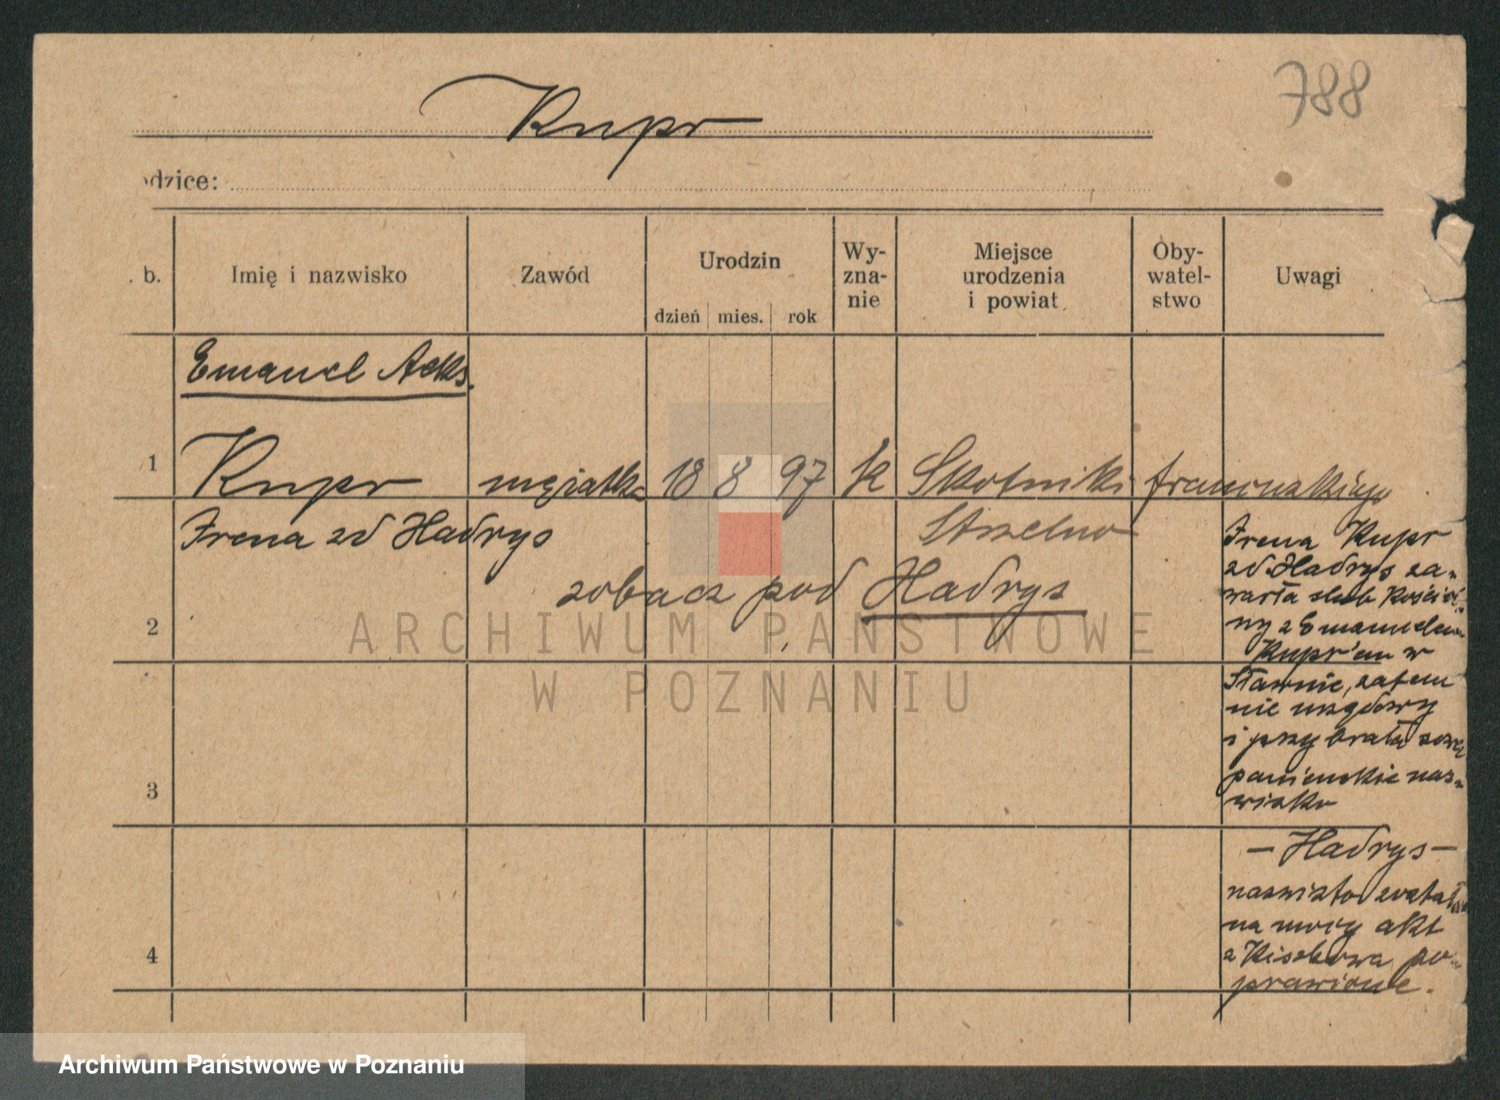 788
Kupr
odzice:
b.
Imię i nazwisko
Zawód
Urodzin
dzień mies. rok
Wy-
zna-
nie
Miejsce
urodzenia
i powiat
Oby-
watel-
stwo
Uwagi
Emanuel Aleks.
1 Kupr mężatka 18 8 97 k Skotniki francuskiego
Irena zd Hadrys Strzelno
zobacz pod Hadrys
2
3
4
Irena Kupr
zd Hadrys za-
warła ślub Kościel
ny z Emanuelem
Kupr'em w
Sławnie, zatem
nie wzgdowy
i przybrała swe
panieńskie naz-
wisko
- Hadrys -
nazwisko zostało
na mocy akt
z Kiszkowa po-
prawione.
ARCHIWUM PAŃSTWOWE
W POZNANIU
Archiwum Państwowe w Poznaniu